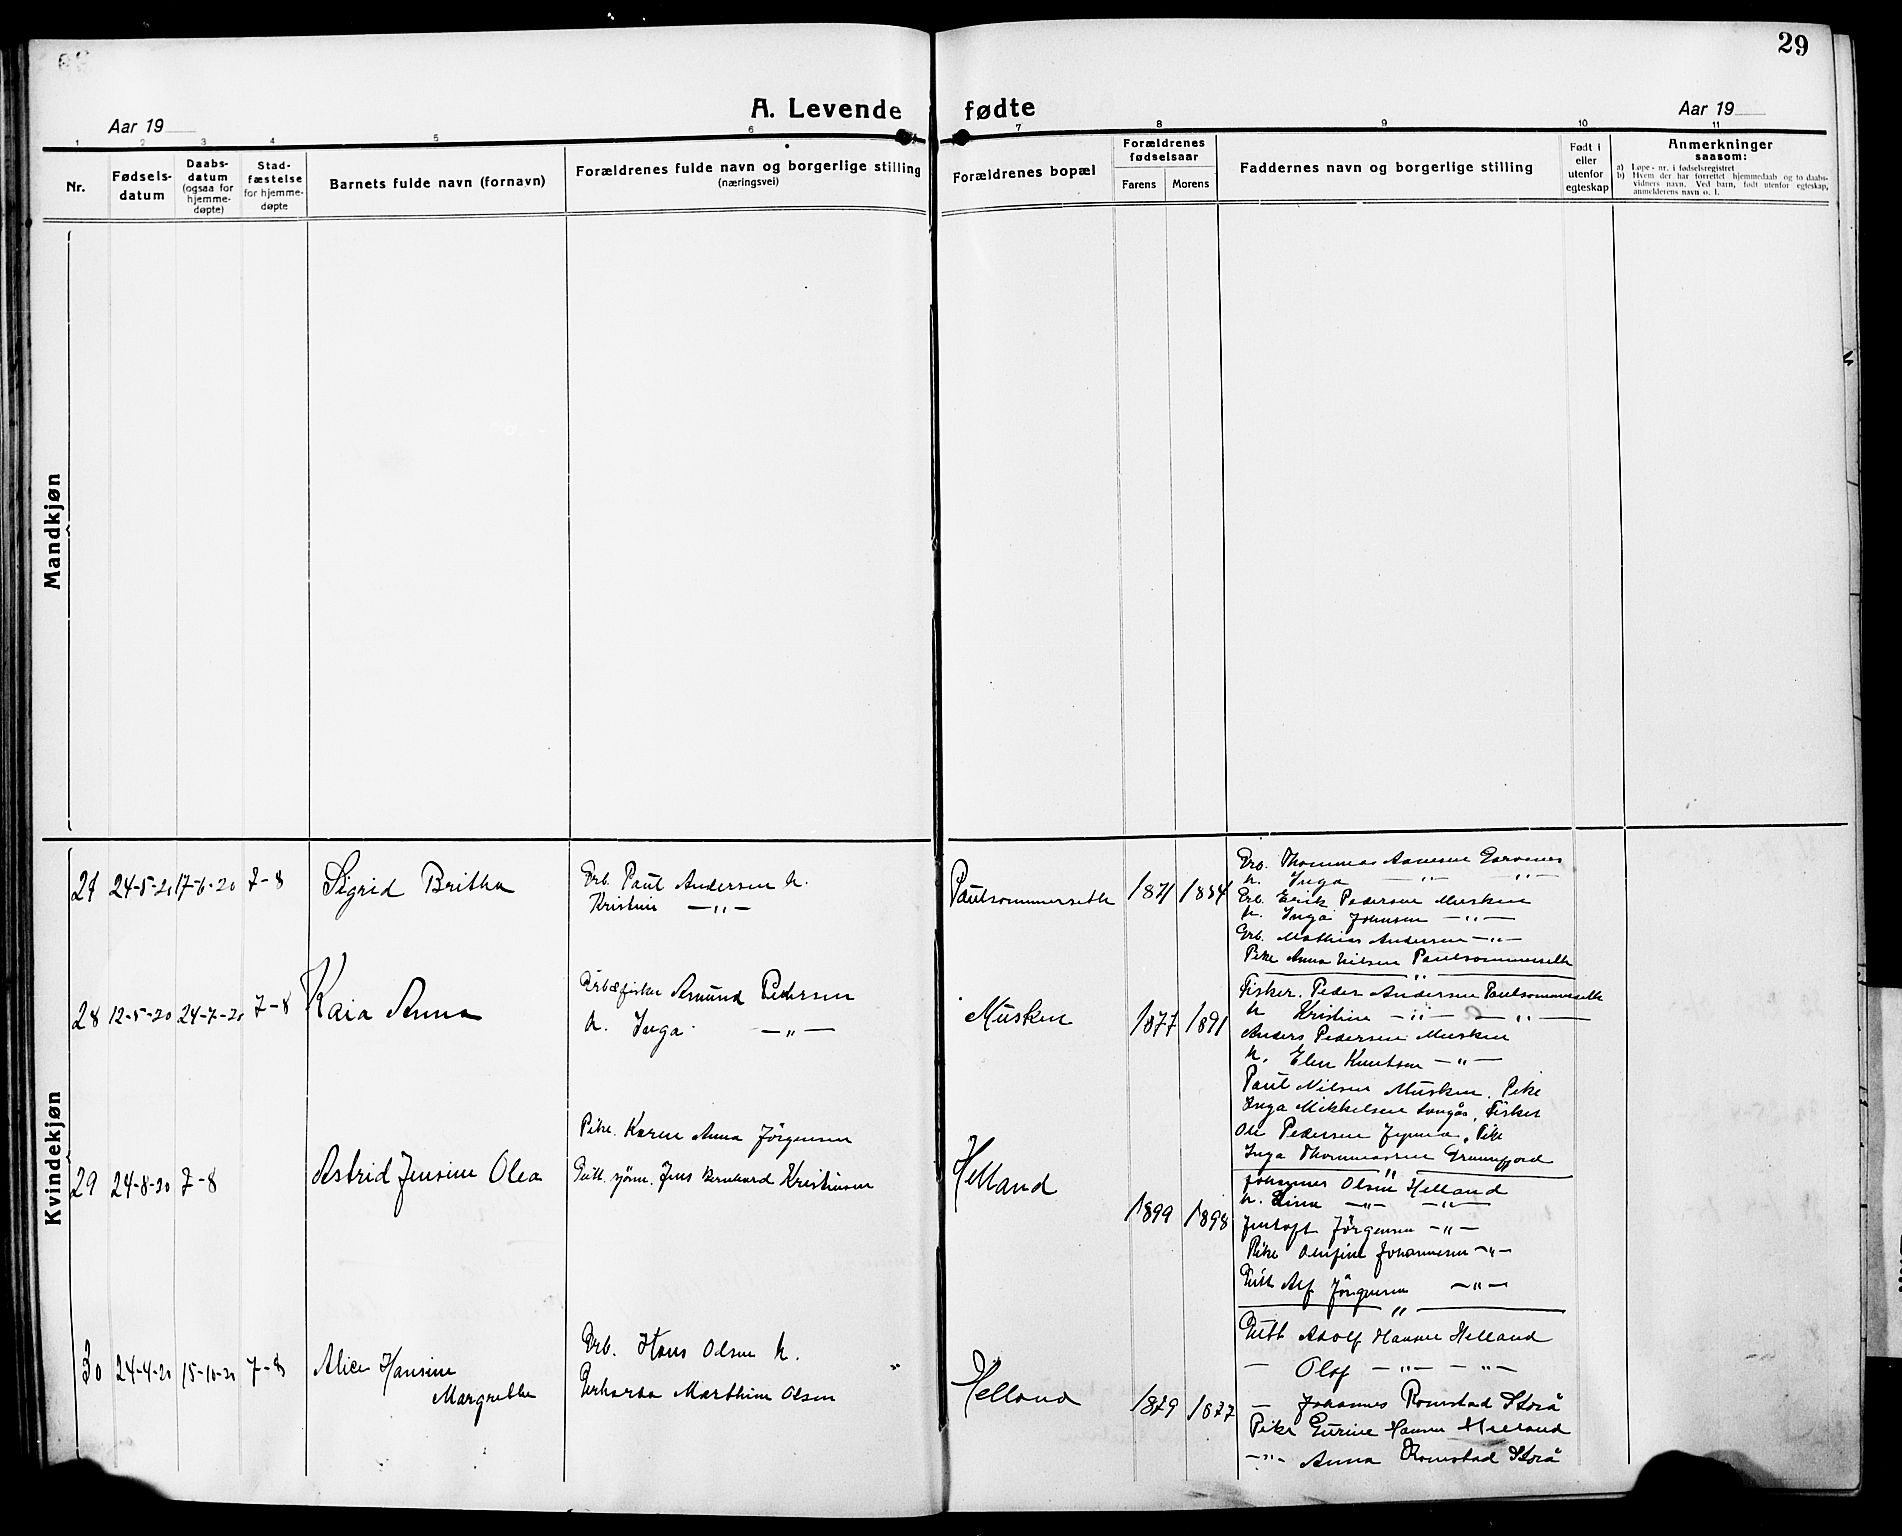 29
A. Levende fødte
Aar 19
Aar 19
1 2 3 4 5 6 7 8 9 10 11
Nr.
Fødsels-
datum
Daabs-
datum
(ogsaa for
hjemme-
døpte)
Stad-
fæstelse
for hjemme-
døpte
Barnets fulde navn (fornavn)
Forældrenes fulde navn og borgerlige stilling
(næringsvei)
Forældrenes bopæl
Forældrenes
fødselsaar
Farens
Morens
Faddernes navn og borgerlige stilling
Født i
eller
utenfor
egteskap
Anmerkninger
saasom:
a) Løpe-nr. i fødselsregistret
b) Hvem der har forrettet hjemmedaab og to daabs-
vidners navn. Ved barn, født utenfor egteskap,
anmelderens navn o. l.
Mandkjøn
Kvindekjøn
27 24-5-20 17-6-20 7-8
Sigrid Britha
Arb. Paul Andersen h.
Kristine —„—
Paulsommerseth
1871
Arb. Thommas Aanesen
h. Inga —„— —„—
Arb. Erik Pedersen Musken
h. Inga Johnsen —„—
Arb. Mathias Andersen —„—
Pike Anna Nilsen Paulsommerseth
28 12-5-20 24-7-20 7-8
Kaia Anna
Arb.&fisker Amund Pedersen
h. Inga —„—
Musken
1877 1891
Fisker. Peder Andersen Paulsommerseth
h Kristine —„— —„—
Anders Pedersen Musken
h. Elen Knutsen —„—
Paul Nilsen Musken. Pike
Inga Mikkelsen . Fisker
Ole Pedersen , Pike
Inga Thommassen
29 24-8-20 7-8
Astrid Jensine Olea
Pike. Karen Anna Jörgensen
Gutt. Jens Bernhard Kristiansen
Helland
1899 1898
Johannes Olsen Helland
h. Lina —„— —„—
Jentoft Jörgensen —„—
Pike Johannesen —„—
Gutt Alf Jörgensen —„—
30 24-4-20 15-10-20 7-8
Alice Hansine
Margrethe
Arb. Hans Olsen h.
Gerharda Marthine Olsen
Helland
1879 1877
Gutt Adolf Hansen Helland
— Olaf —„— —„—
— Johannes Romstad Storå
Pike Gurine Hansen Helland
—„— Anna Romstad Storå